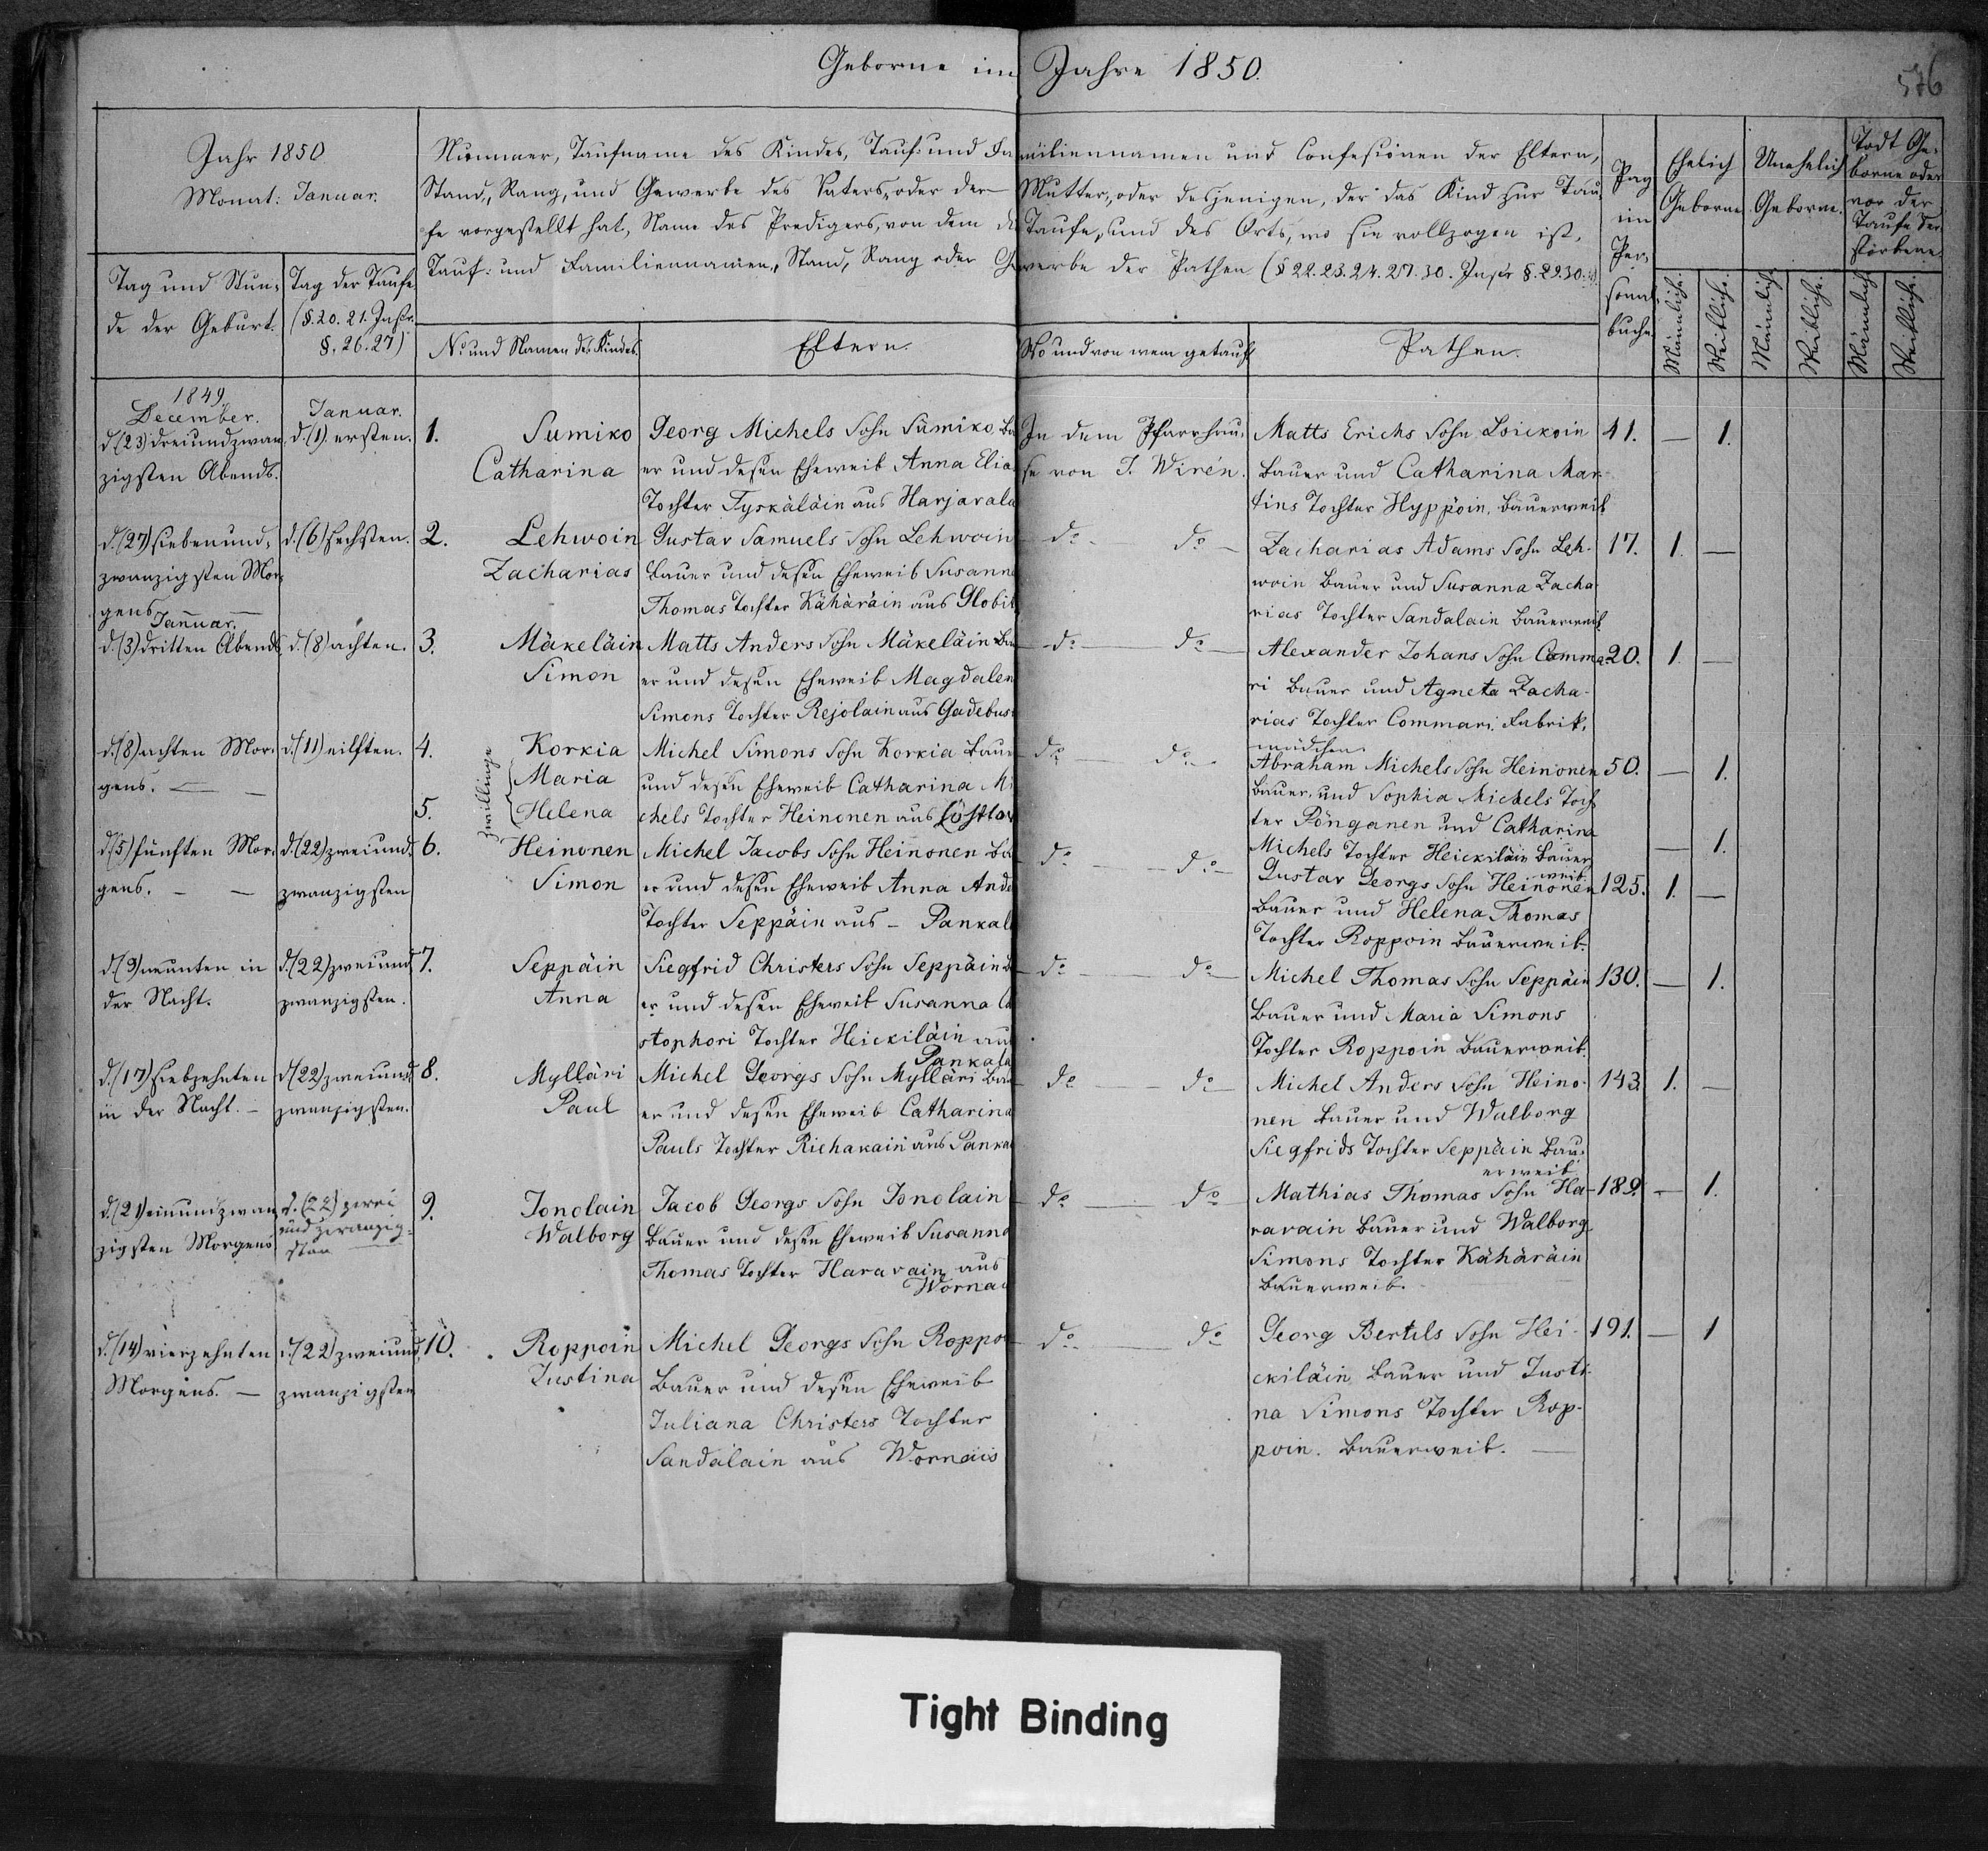 Geborne im Jahre 1850.
576
Jahr 1850
Monat: Januar.
Tag und Stun-
de der Geburt.
Tag der Taufe
(§. 20. 21. Instr.
§. 26. 27)
Nummer, Taufname des Kindes, Tauf- und Familiennamen und Confesionen der Eltern,
Stand, Rang, und Gewerbe des Vaters, oder der Mutter, oder desjenigen, der das Kind zur Tau-
fe vorgestellt hat, Name des Predigers, von dem die Taufe, und des Orts, wo sie vollzogen ist,
Tauf- und Familiennamen, Stand, Rang oder Gewerbe der Pathen (§ 22. 23. 24. 27. 30. Instr §. 29. 30.
No: und Namen des Kindes.
Eltern.
Wo und von wem getauft
Pathen.
Pag
im
Per-
sonal
buche
Ehelich
Geborne
Unehelich
Geborne.
Todt Ge-
borne oder
vor der
Taufe Ver-
storbene.
Männliche.
Weibliche.
Männliche
Weibliche.
Männliche
Weibliche.
1849.
December.
d. (23) dreiundzwan
zigsten Abends.
Januar.
d. (1) ersten.
1.
Sumiko
Catharina
Georg Michels Sohn Sumiko, Bau
er und desen Eheweib Anna Elia
Tochter Tyskäläin aus Harjavala
In dem Pfarrhau-
se von J. Wirén.
Matts Erichs Sohn Loickoin
Bauer und Catharina Mar-
tins Tochter Hyppöin, Bauerweib
41. — 1.
d. (27) siebenund-
zwanzigsten Mor-
gens
d. (6) sechsten.
2.
Lehwoin
Zacharias
Gustav Samuels Sohn Lehwoin
Bauer und desen Eheweib Susanna
Thomas Tochter Kähäräin aus Globit
do — do —
Zacharias Adams Sohn Leh-
woin Bauer und Susanna Zacha
rias Tochter Sandalain Bauerweib
17. 1. —
Januar.
d. (3) dritten Abends
d. (8) achten.
3.
Mäkeläin
Simon
Matts Anders Sohn Mäkeläin Bau
er und desen Eheweib Magdalen
Simons Tochter Rejolain aus Gadebus
do — do —
Alexander Johans Sohn Comma
ri Bauer und Agneta Zacha-
rias Tochter Commari, Fabrik-
mädchen.
20. 1. —
d. (8) achten Mor-
gens. —
d. (11) eilften.
4.
5.
Zwillinge
Korkia
Maria
Helena
Michel Simons Sohn Korkia Bauer
und desen Eheweib Catharina Mi
chels Tochter Heinonen aus
do — do —
Abraham Michels Sohn Heinonen
Bauer, und Sophia Michels Toch
ter Pönganen und Catharina
Michels Tochter Heickiläin Bauer
weib
50. — 1.
— 1.
d. (5) fünften Mor-
gens. — —
d. (22) zweiund-
zwanzigsten
6.
Heinonen
Simon
Michel Jacobs Sohn Heinonen Bau
er und desen Eheweib Anna Ande
Tochter Seppäin aus — Pankal
do — do —
Gustav Georgs Sohn Heinonen
Bauer und Helena Thomas
Tochter Roppoin Bauerweib.
125. 1. —
d. (9) neunten in
der Nacht.
d. (22) zweiund
zwanzigsten.
7.
Seppäin
Anna
Siegfrid Christers Sohn Seppäin B
er und desen Eheweib Susanna
stophori Tochter Heickiläin aus
Pankala
do — do —
Michel Thomas Sohn Seppäin
Bauer und Maria Simons
Tochter Roppoin Bauerweib.
130. — 1.
d. (17) siebzehnten
in der Nacht. —
d. (22) zweiund
zwanzigsten.
8.
Mylläri
Paul
Michel Georgs Sohn Mylläri Bau
er und desen Eheweib Catharina
Pauls Tochter Richakain aus Pankal
do — do —
Michel Anders Sohn Heino-
nen Bauer und Walborg
Siegfrids Tochter Seppäin Bau-
erweib
143. 1. —
d. (21) einundzwan
zigsten Morgens
d. (22) zwei
und zwanzig-
sten
9.
Jonolain
Walborg
Jacob Georgs Sohn Jonolain
Bauer und desen Eheweib Susanna
Thomas Tochter Haravain aus
Worna
do — do —
Mathias Thomas Sohn Ha-
ravain Bauer und Walborg
Simons Tochter Kähäräin
Bauerweib.
189. — 1.
d. (14) vierzehnten
Morgens. —
d. (22) zweiund
zwanzigsten
10.
Roppoin
Justina
Michel Georgs Sohn Roppoi
Bauer und desen Eheweib
Juliana Christers Tochter
Sandalain aus Wornois
do — do
Georg Bertils Sohn Hei-
ckiläin Bauer und Justi-
na Simons Tochter Rop-
poin. Bauerweib. —
191. — 1
Tight Binding